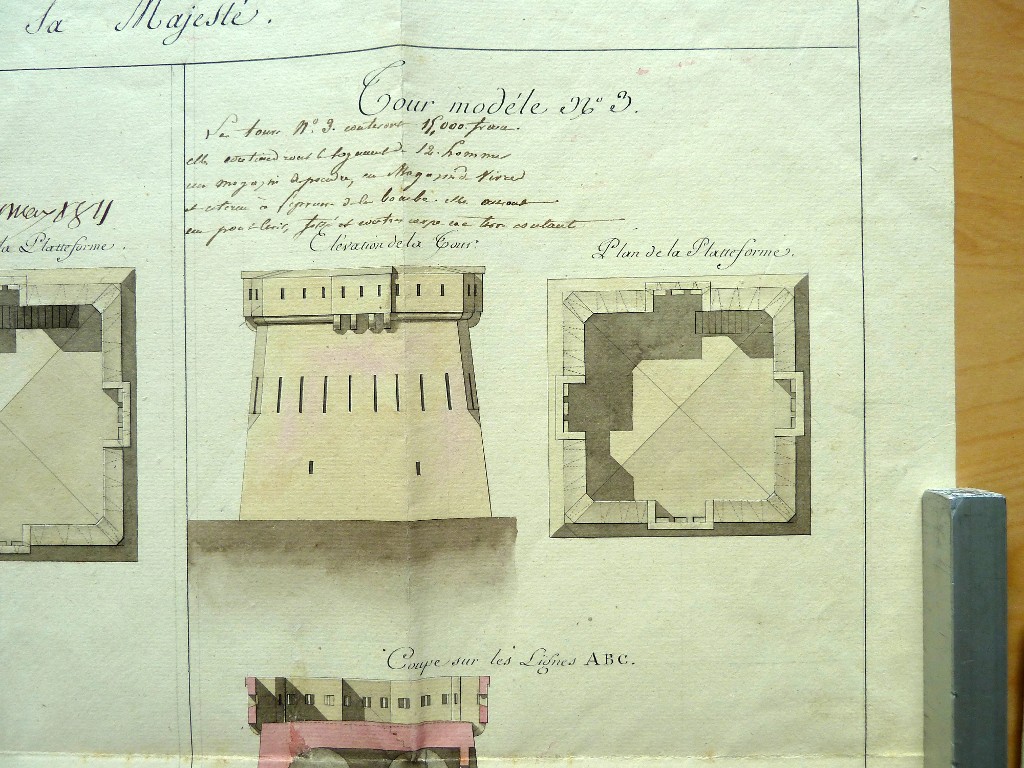 Sa Majesté.
Tour modéle No 3.
La tour No. 3. coutera 15,000 francs.
elle contiendra le logement de 12. hommes
un magazin à poudre, un Magazin de Vivres
et citerne à l'épreuve de la bombe. elle auront
un pont levis, fossé et contrescarpe
la Platteforme.
Elévation de la Tour.
Plan de la Platteforme.
Coupe sur les Lignes ABC.